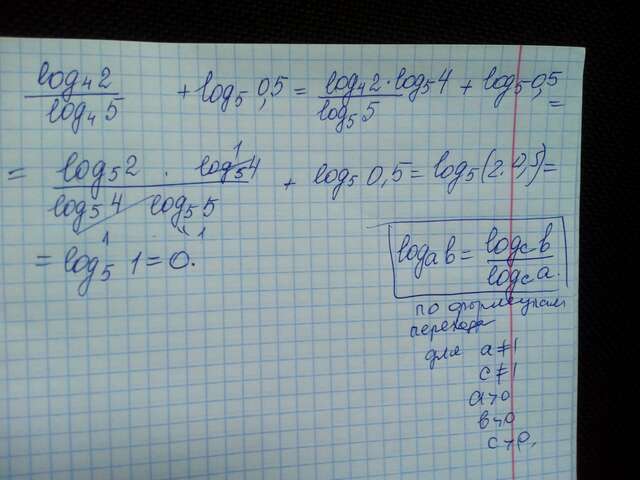 log₄2 / log₄5 + log₅0,5 = log₄2·log₅4 / log₅5 + log₅0,5 =
= log₅2 · log₅4 / log₅4 log₅5 + log₅0,5 = log₅(2·0,5) =
= log₅ 1 = 0.
logₐb = log_c b / log_c a.
по формулам
перехода
для a≠1
c≠1
a>0
b>0
c>0.